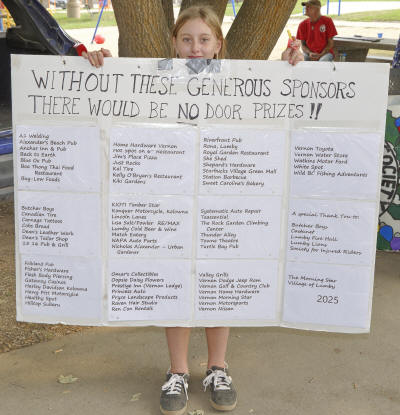 WITHOUT THESE GENEROUS SPONSORS
THERE WOULD BE NO DOOR PRIZES!!
A1 Welding
Alexander's Beach Pub
Anchor Inn & Pub
Back to Earth
Blue Ox Pub
Boa Thong Thai Food
Restaurant
Buy-Low Foods
Home Hardware Vernon
Hot spot on 6th Restaurant
Jim's Place Pizza
Just Rocks
Kal Tire
Kelly O'Bryan's Restaurant
Kiki Gardens
Riverfront Pub
Rona, Lumby
Royal Garden Restaurant
She Shed
Shepard's Hardware
Starbucks Village Green Mall
Station Barbecue
Sweet Carolina's Bakery
Vernon Toyota
Vernon Water Store
Watkins Motor Ford
White Spot
Wild BC Fishing Adventures
Butcher Boys
Canadian Tire
Carnage Tattoos
Cobs Bread
Dean's Leather Work
Dear's Tailor Shop
19 16 Pub & Grill
KIOTI Timber Star
Kangaur Motorcycle, Kelowna
Lincoln Lanes
Lisa Salt/Traxler RE/MAX
Lumby Cold Beer & Wine
Match Eatery
NAPA Auto Parts
Nicholas Alexander - Urban
Gardener
Systematic Auto Repair
Teassential
The Rock Garden Climbing
Center
Thunder Alley
Towne Theatre
Turtle Bay Pub
A special Thank You to:
Butcher Boys
Ombonat
Lumby Fun Hall
Lumby Lions
Society for Injured Riders
Falkland Pub
Fisher's Hardware
Flesh Body Piercing
Gateway Casinos
Harley Davidson Kelowna
Harry Fitt Motorcycle
Healthy Spot
Hilltop Subaru
Omar's Collectibles
Oopsie Daisy Flowers
Prestige Inn (Vernon Lodge)
Princess Auto
Pryce Landscape Products
Raven Hair Studio
Ren Con Rentals
Valley Grills
Vernon Dodge Jeep Ram
Vernon Golf & Country Club
Vernon Home Hardware
Vernon Morning Star
Vernon Motorsports
Vernon Nissan
The Morning Star
Village of Lumby
2025
SOCIETY